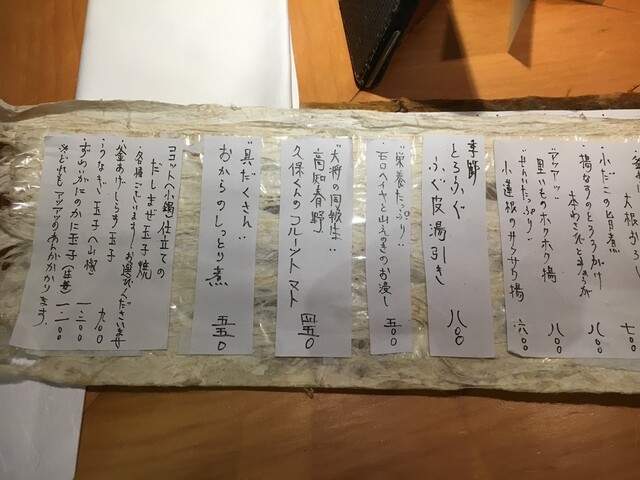 大根お
七〇〇
小だこの旨煮
揚なすのとろろがけ
本わさびと
八〇〇
"アツアツ"
里いものホクホク揚
八〇〇
"せんいたっぷり"
小蓮根のサクサク揚
六〇〇
季節
とらふぐ
ふぐ皮湯引き
八〇〇
"栄養たっぷり"
モロヘイヤと山えのきのお浸し
五〇〇
"大将の同級生"
高知春野
久保くんのフルーツトマト
四五〇
"具だくさん"
おからのしっとり煮
五五〇
ココット(小鍋)仕立ての
だしまぜ玉子焼
各種ございます お選びくださいませ
・釜あげしらす玉子 九〇〇
・うなぎ玉子(山椒) 一、二〇〇
・ずわいがにのかに玉子(生姜) 一、二〇〇
※どれもアツアツのあんかかります。